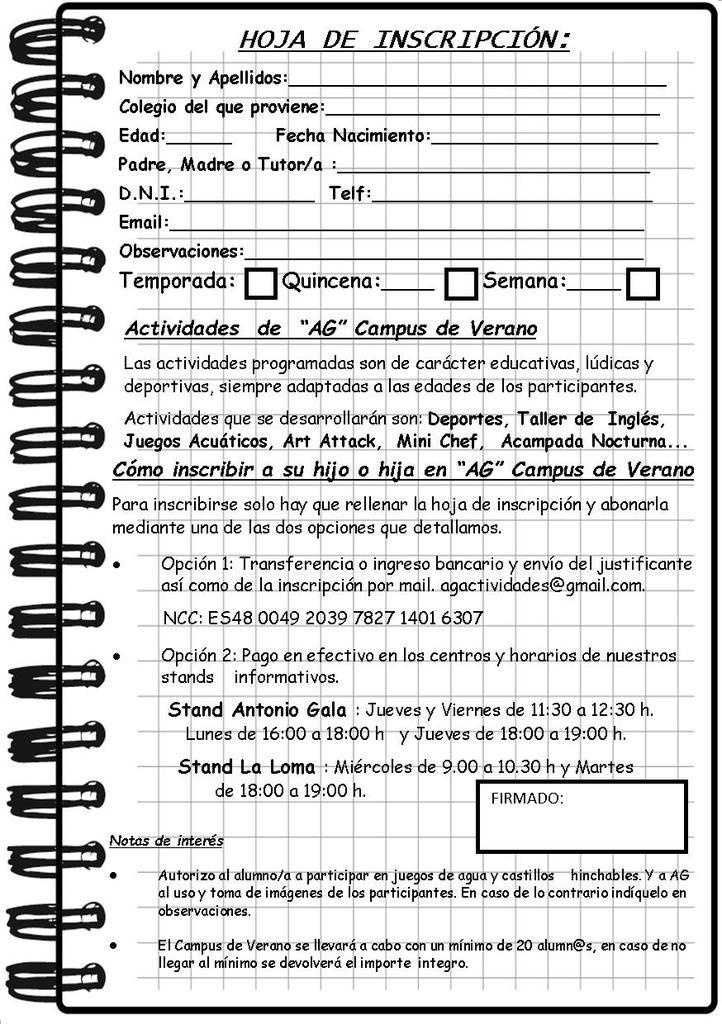 HOJA DE INSCRIPCIÓN:
Nombre y Apellidos:
Colegio del que proviene:
Edad: Fecha Nacimiento:
Padre, Madre o Tutor/a :
D.N.I.: Telf:
Email:
Observaciones:
Temporada: Quincena: Semana:
Actividades de “AG” Campus de Verano
Las actividades programadas son de carácter educativas, lúdicas y
deportivas, siempre adaptadas a las edades de los participantes.
Actividades que se desarrollarán son: Deportes, Taller de Inglés,
Juegos Acuáticos, Art Attack, Mini Chef, Acampada Nocturna...
Cómo inscribir a su hijo o hija en “AG” Campus de Verano
Para inscribirse solo hay que rellenar la hoja de inscripción y abonarla
mediante una de las dos opciones que detallamos.
• Opción 1: Transferencia o ingreso bancario y envío del justificante
así como de la inscripción por mail. agactividades@gmail.com.
NCC: ES48 0049 2039 7827 1401 6307
• Opción 2: Pago en efectivo en los centros y horarios de nuestros
stands informativos.
Stand Antonio Gala : Jueves y Viernes de 11:30 a 12:30 h.
Lunes de 16:00 a 18:00 h y Jueves de 18:00 a 19:00 h.
Stand La Loma : Miércoles de 9.00 a 10.30 h y Martes
de 18:00 a 19:00 h.
FIRMADO:
Notas de interés
• Autorizo al alumno/a a participar en juegos de agua y castillos hinchables. Y a AG
al uso y toma de imágenes de los participantes. En caso de lo contrario indíquelo en
observaciones.
• El Campus de Verano se llevará a cabo con un mínimo de 20 alumn@s, en caso de no
llegar al mínimo se devolverá el importe integro.